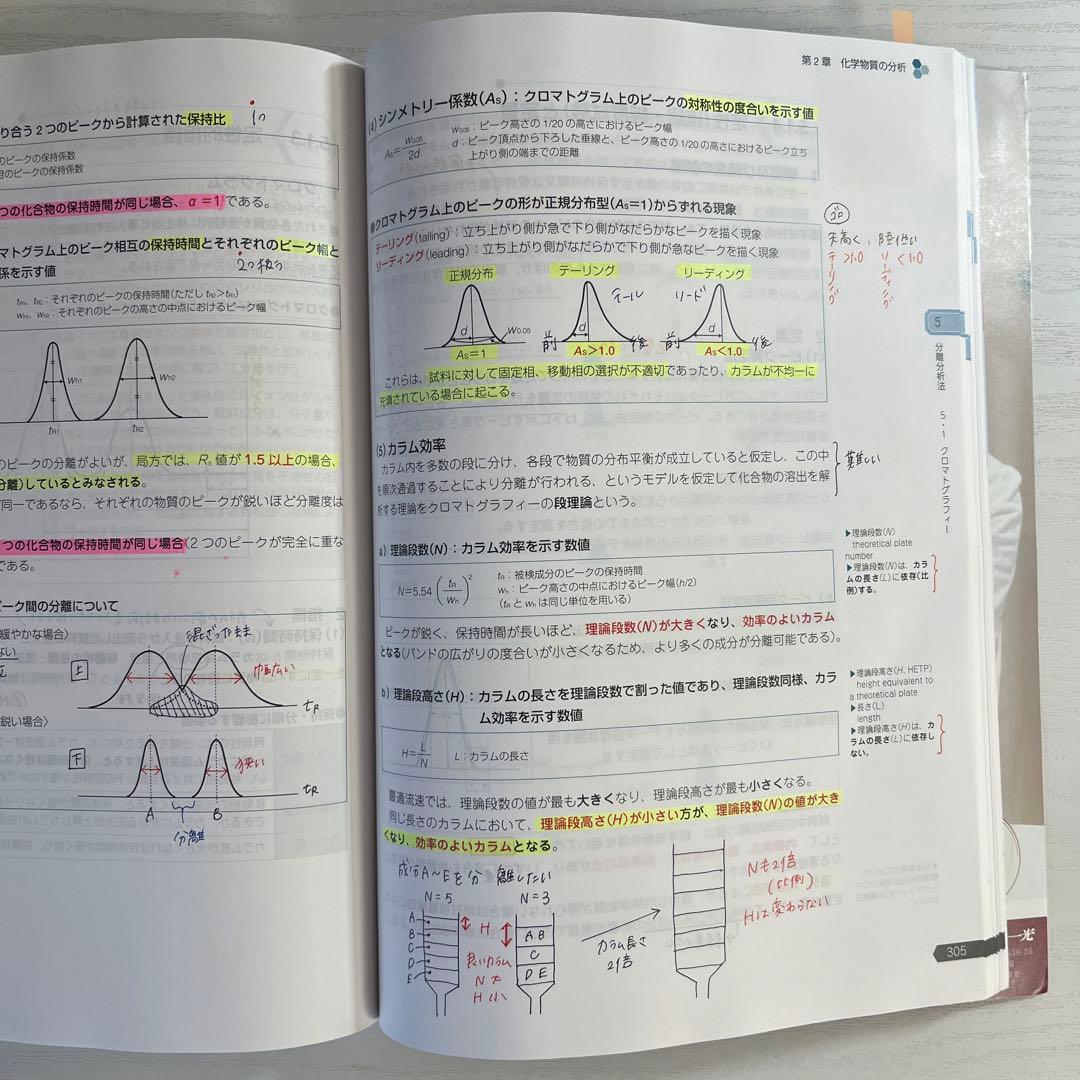 り合う2つのピークから計算された保持比
のピークの保持係数
目のピークの保持係数
つの化合物の保持時間が同じ場合、α＝1である。
マトグラム上のピーク相互の保持時間とそれぞれのピーク幅と
係を示す値
tR1、tR2：それぞれのピークの保持時間(ただし tR2>tR1)
wh1、wh2：それぞれのピークの高さの中点におけるピーク幅
wh1
wh2
tR1
tR2
のピークの分離がよいが、局方では、Rs値が1.5以上の場合、
分離)しているとみなされる。
同一であるなら、それぞれの物質のピークが鋭いほど分離度は
つの化合物の保持時間が同じ場合(2つのピークが完全に重な
である。
ピーク間の分離について
緩やかな場合〉
混ざったまま
上
幅広い
tR
鋭い場合〉
下
狭い
tR
A
B
分離
第2章 化学物質の分析
(4) シンメトリー係数(As)：クロマトグラム上のピークの対称性の度合いを示す値
As=W0.05/2d
W0.05：ピーク高さの1/20の高さにおけるピーク幅
d：ピーク頂点から下ろした垂線と、ピーク高さの1/20の高さにおけるピーク立ち
上がり側の端までの距離
●クロマトグラム上のピークの形が正規分布型(As=1)からずれる現象
テーリング(tailing)：立ち上がり側が急で下り側がなだらかなピークを描く現象
リーディング(leading)：立ち上がり側がなだらかで下り側が急なピークを描く現象
正規分布
テーリング
リーディング
テール
リード
d
W0.05
前
d
後
前
d
後
As=1
As>1.0
As<1.0
ゴロ
テーリング >1.0
リーディング <1.0
これらは、試料に対して固定相、移動相の選択が不適切であったり、カラムが不均一に
充填されている場合に起こる。
(5) カラム効率
カラム内を多数の段に分け、各段で物質の分布平衡が成立していると仮定し、この中
を順次通過することにより分離が行われる、というモデルを仮定して化合物の溶出を解
析する理論をクロマトグラフィーの段理論という。
難しい
a) 理論段数(N)：カラム効率を示す数値
N=5.54(tR/wh)2
tR：被検成分のピークの保持時間
wh：ピーク高さの中点におけるピーク幅(h/2)
(tRとwhは同じ単位を用いる)
ピークが鋭く、保持時間が長いほど、理論段数(N)が大きくなり、効率のよいカラム
となる(バンドの広がりの度合いが小さくなるため、より多くの成分が分離可能である)。
b) 理論段高さ(H)：カラムの長さを理論段数で割った値であり、理論段数同様、カラ
ム効率を示す数値
H=L/N
L：カラムの長さ
最適流速では、理論段数の値が最も大きくなり、理論段高さが最も小さくなる。
同じ長さのカラムにおいて、理論段高さ(H)が小さい方が、理論段数(N)の値が大き
くなり、効率のよいカラムとなる。
成分A～Eを分離したい
N=5
N=3
A
B
C
D
E
H
良いカラム
N 大
H 小
A B
C
D E
カラム長さ
2倍
Nも2倍
(比例)
Hは変わらない
▶理論段数(N)
theoretical plate
number
▶理論段数(N)は、カラ
ムの長さ(L)に依存(比
例)する。
▶理論段高さ(H, HETP)
height equivalent to
a theoretical plate
▶長さ(L)
length
▶理論段高さ(H)は、カ
ラムの長さ(L)に依存し
ない。
5
分離分析法
5・1 クロマトグラフィー
305
一光